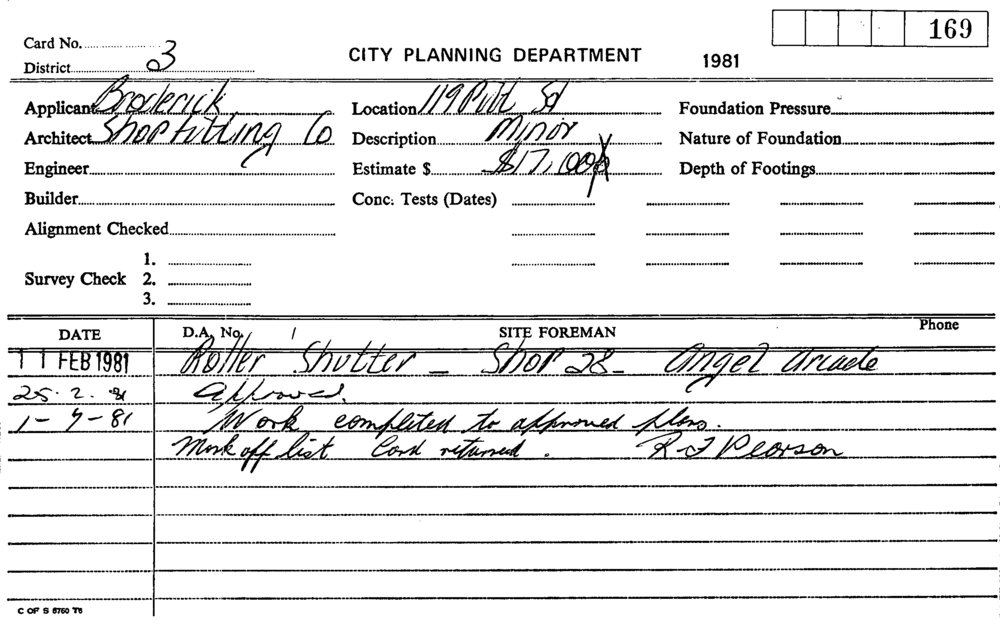 169
Card No.
CITY PLANNING DEPARTMENT 1981
District 3
Applicant Broderick Location 119 Pitt St Foundation Pressure
Architect Shopfitting Co Description Minor Nature of Foundation
Engineer Estimate $ $17,000 Depth of Footings
Builder Conc. Tests (Dates)
Alignment Checked
1.
Survey Check 2.
3.
DATE D.A. No. SITE FOREMAN Phone
11 FEB 1981 Roller Shutter - Shop 28 - Angel Arcade
25. 2. 81 Approved.
1-7-81 Work completed to approved plans.
Mark off list Card returned. R J Pearson
C OF S 6760 T6